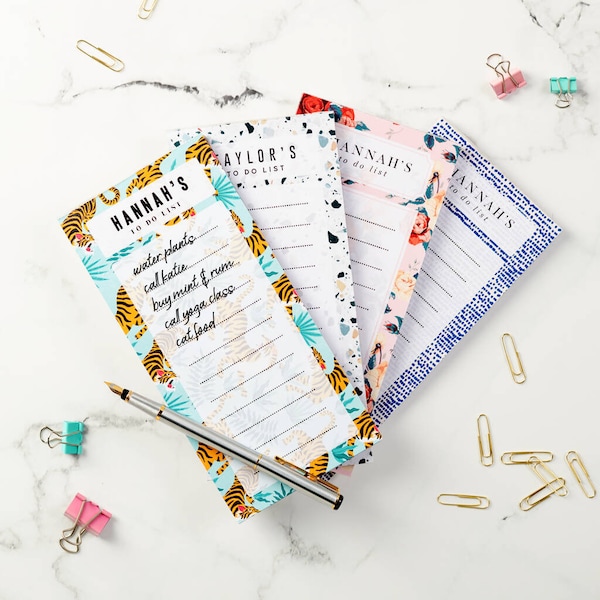 HANNAH'S
TO DO LIST
water plants
call katie
buy mint & rum
call yoga class
cat food
AYLOR'S
TO DO LIST
HANNAH'S
to do list
HANNAH'S
to do list